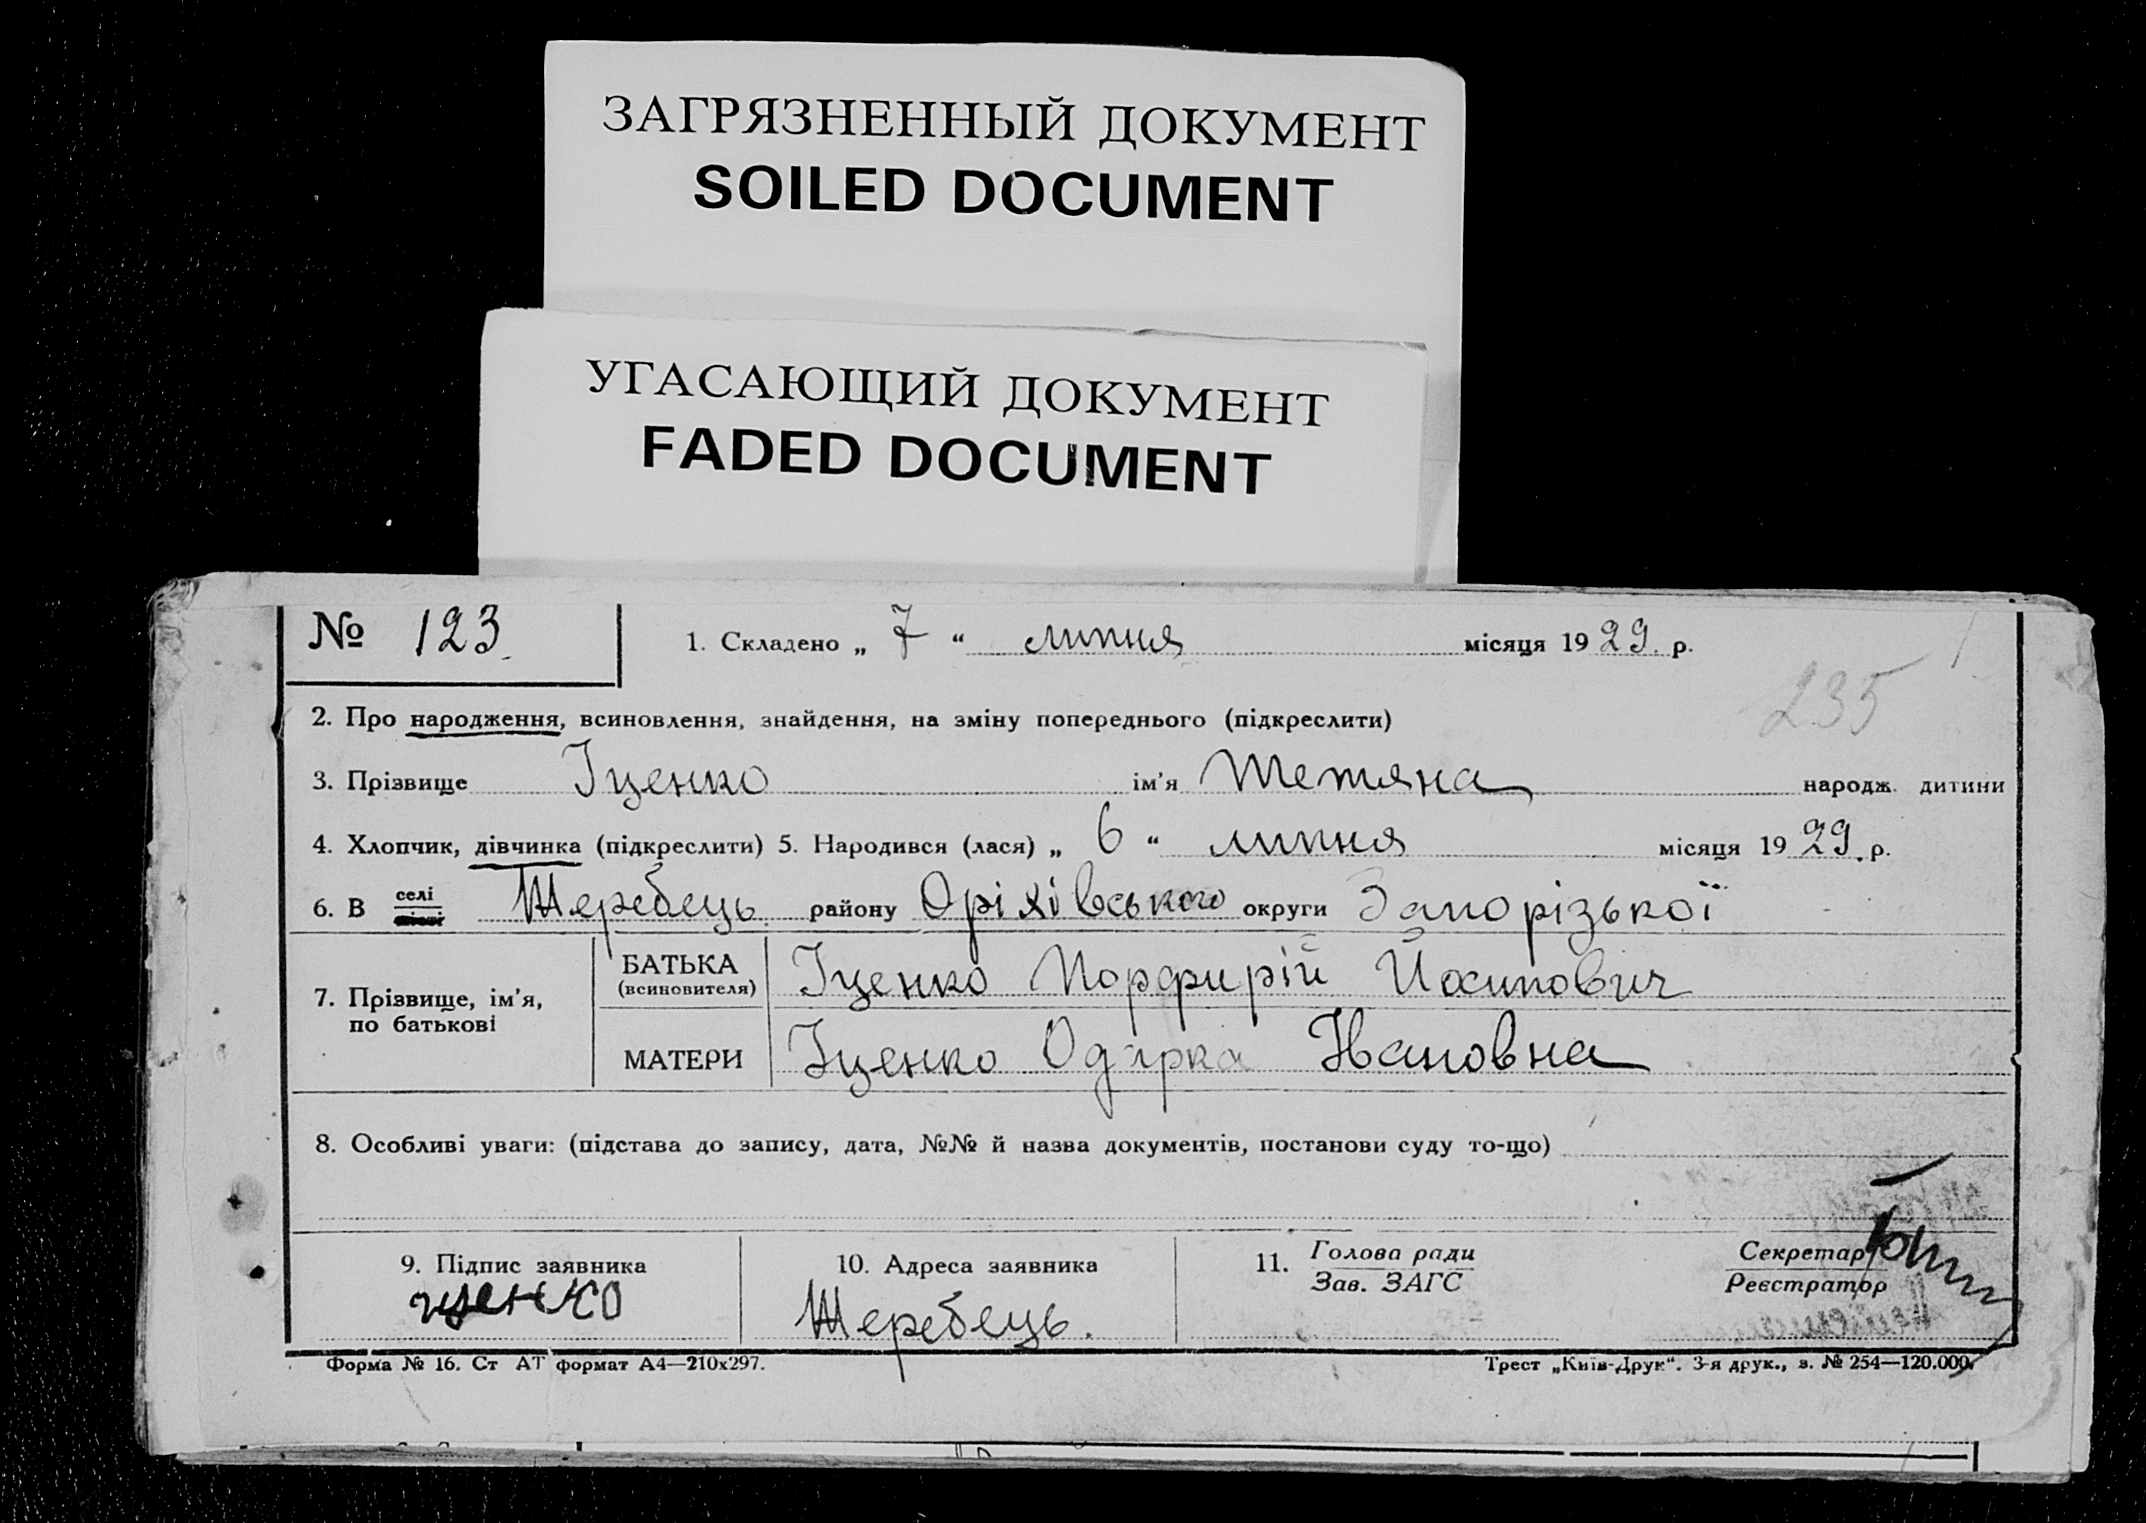 ЗАГРЯЗНЕННЫЙ ДОКУМЕНТ
SOILED DOCUMENT
УГАСАЮЩИЙ ДОКУМЕНТ
FADED DOCUMENT
№ 123 1. Складено „ 7 “ липня місяця 1929. р.
235
2. Про народження, всиновлення, знайдення, на зміну попереднього (підкреслити)
3. Прізвище Іценко ім'я Тетяна народж. дитини
4. Хлопчик, дівчинка (підкреслити) 5. Народився (лася) „ 6 “ липня місяця 1929. р.
6. В селі Жеребець району Оріхівського округи Запорізької
7. Прізвище, ім'я, по батькові
БАТЬКА (всиновителя) Іценко Порфирій Йосипович
МАТЕРИ Іценко Одарка Ивановна
8. Особливі уваги: (підстава до запису, дата, №№ й назва документів, постанови суду то-що)
9. Підпис заявника
іценко
10. Адреса заявника
Жеребець.
11. Голова ради
Зав. ЗАГС
Секретар
Реєстратор
Форма № 16. Ст АТ формат А4—210х297.
Трест „Київ-Друк“. 3-я друк., з. № 254—120.000.